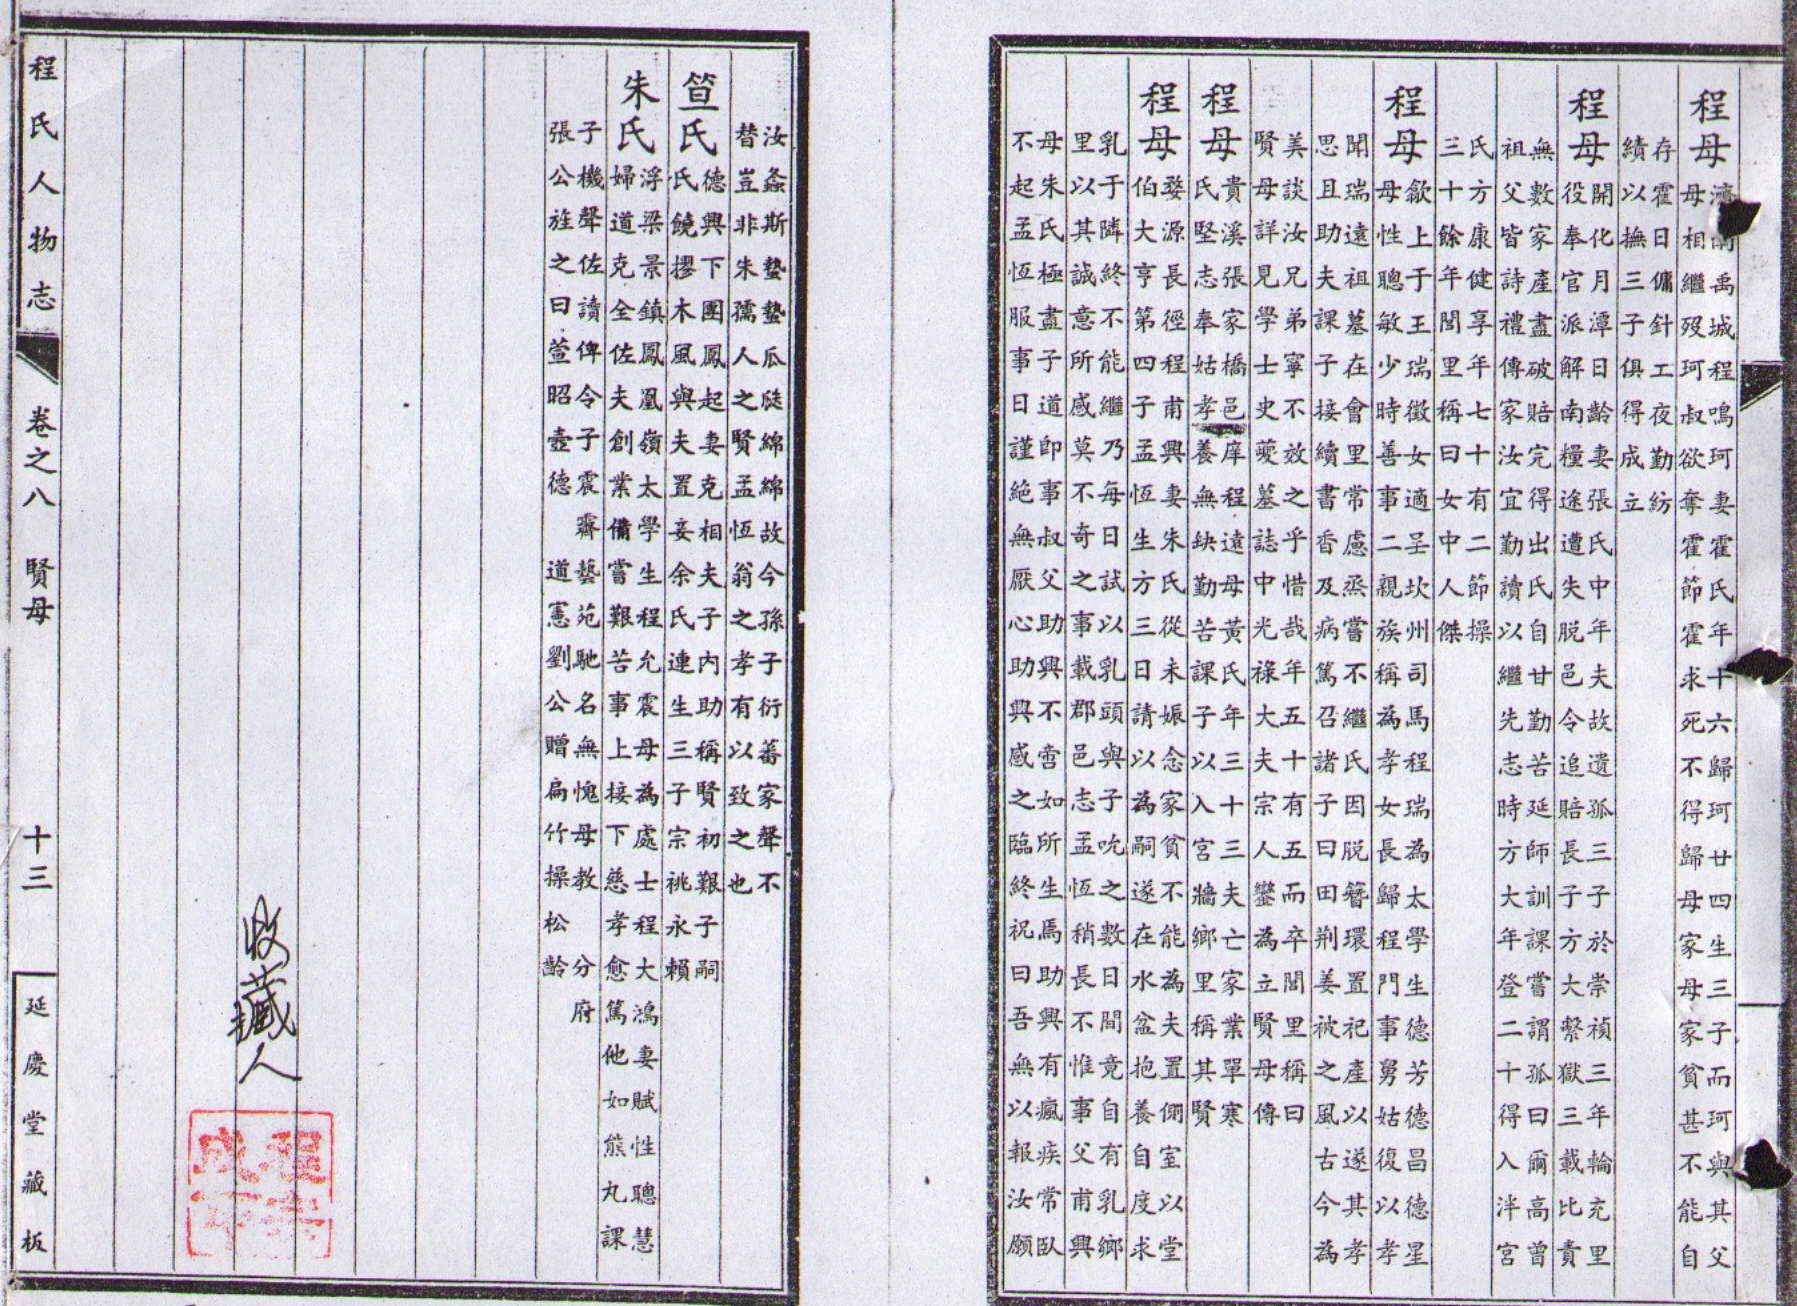 程母
濟南禹城程鳴珂妻霍氏年十六歸珂廿四生三子而珂與其父
母相繼歿珂叔欲奪霍節霍求死不得歸母家母家貧甚不能自
存霍日傭針工夜勤紡
績以撫三子俱得成立
程母
開化月潭日齡妻張氏中年夫故遺孤三子於崇禎三年輪充里
役奉官派解南糧途遭失脱邑令追賠長子方大繫獄三載比責
無數家產盡破賠完得出氏自甘勤苦延師訓課嘗謂孤曰爾高曾
祖父皆詩禮傳家汝宜勤讀以繼先志時方大年登二十得入泮宮
氏方康健享年七十有二節操
三十餘年閭里稱曰女中人傑
程母
歙上于王瑞徵女適呈坎州司馬程瑞為太學生德芳德昌德星
母性聰敏少時善事二親族稱為孝女長歸程門事舅姑復以孝
聞瑞遠祖墓在會里常慮烝嘗不繼氏因脱簪環置祀產以遂其孝
思且助夫課子接續書香及病篤召諸子曰田荆姜被之風古今為
美談汝兄弟寧不效之乎惜哉年五十有五而卒閭里稱曰
賢母詳見學士史夔墓誌中光祿大夫宗人鑾為立賢母傳
程母
貴溪張家橋邑庠程遠母黃氏年三十三夫亡家業單寒
氏堅志奉姑孝養無缺勤苦課子以入宮牆鄉里稱其賢
程母
婺源長徑程甫興妻朱氏從未娠念家貧不能為夫置側室以堂
伯大亨第四子孟恆生方三日請以為嗣遂在水盆抱養自度求
乳于隣終不能繼乃每日試以乳頭與子吮之數日間竟自有乳鄉
里以其誠意所感莫不奇之事載郡邑志孟恆稍長不惟事父甫興
母朱氏極盡子道即事叔父助興不啻如所生焉助興有瘋疾常臥
不起孟恆服事日謹絕無厭心助興感之臨終祝曰吾無以報汝願
汝螽斯蟄蟄瓜瓞綿綿故今孫子衍蕃家聲不
替豈非朱孺人之賢孟恆翁之孝有以致之也
笪氏
德興下團鳳起妻克相夫子內助稱賢初艱子嗣
氏饒摎木風與夫置妾余氏連生三子宗祧永賴
朱氏
浮梁景鎮鳳凰嶺太學生程允震母為處士程大鴻妻賦性聰慧
婦道克全佐夫創業備嘗艱苦事上接下慈孝愈篤他如熊丸課
子機聲佐讀俾令子震霽藝苑馳名無愧母教 分府
張公旌之曰萱昭壼德 道憲劉公贈扁竹操松齡
收藏人
程氏人物志 卷之八 賢母 十三 延慶堂藏板